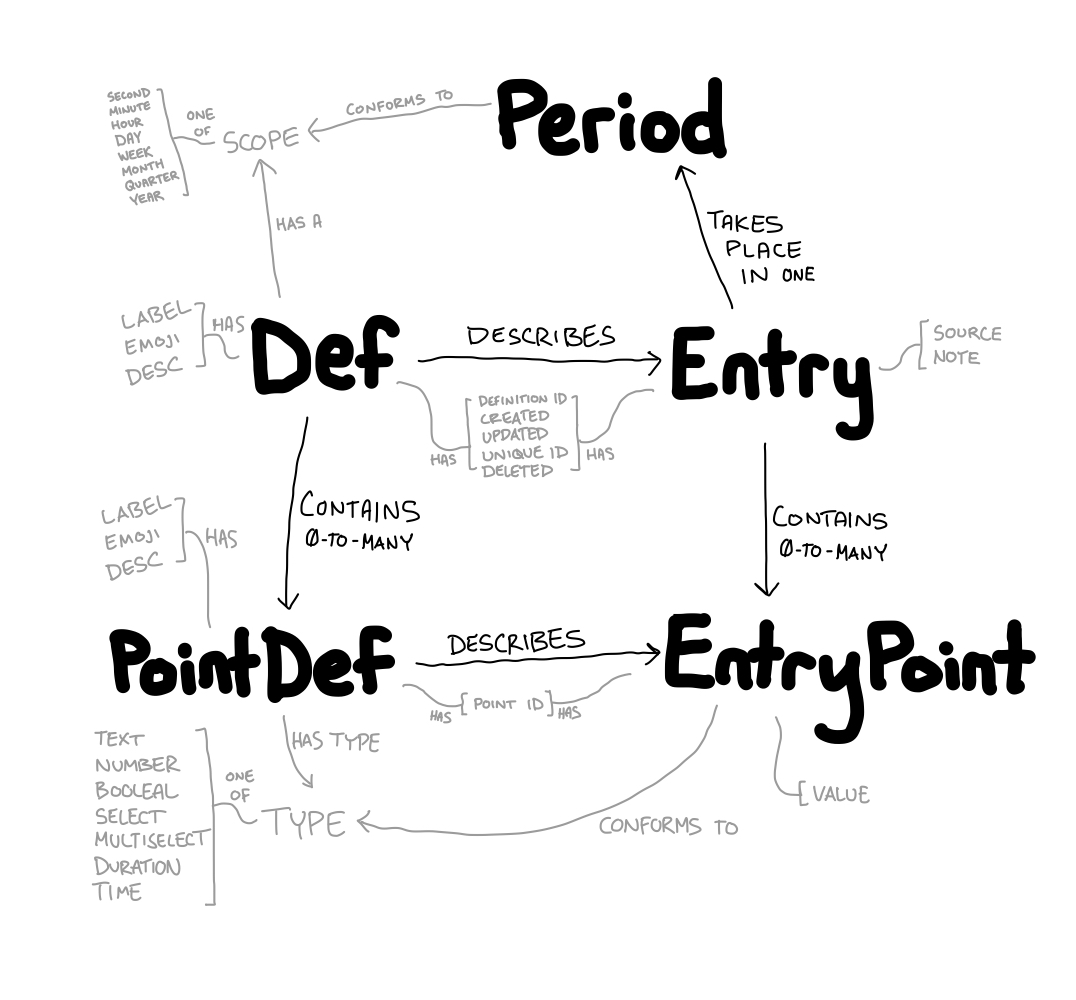 SECOND
MINUTE
HOUR
DAY
WEEK
MONTH
QUARTER
YEAR
ONE
OF
SCOPE
CONFORMS TO
Period
HAS A
TAKES
PLACE
IN ONE
LABEL
EMOJI
DESC
HAS
Def
DESCRIBES
Entry
SOURCE
NOTE
DEFINITION ID
CREATED
UPDATED
UNIQUE ID
DELETED
HAS
HAS
CONTAINS
0-TO-MANY
CONTAINS
0-TO-MANY
LABEL
EMOJI
DESC
HAS
PointDef
DESCRIBES
EntryPoint
HAS
POINT ID
HAS
TEXT
NUMBER
BOOLEAL
SELECT
MULTISELECT
DURATION
TIME
ONE
OF
HAS TYPE
TYPE
CONFORMS TO
VALUE